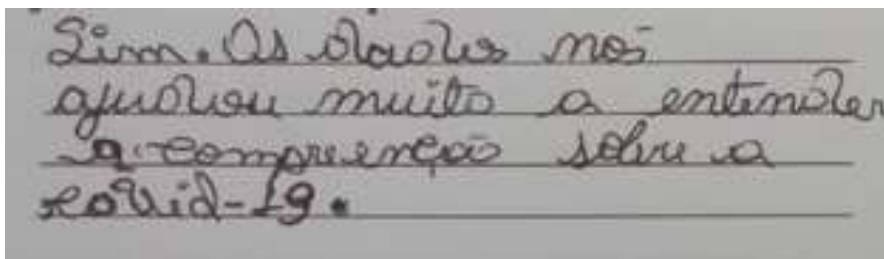 Sim. Os dados nos
ajudou muito a entender
a compreenção sobre a
covid-19.